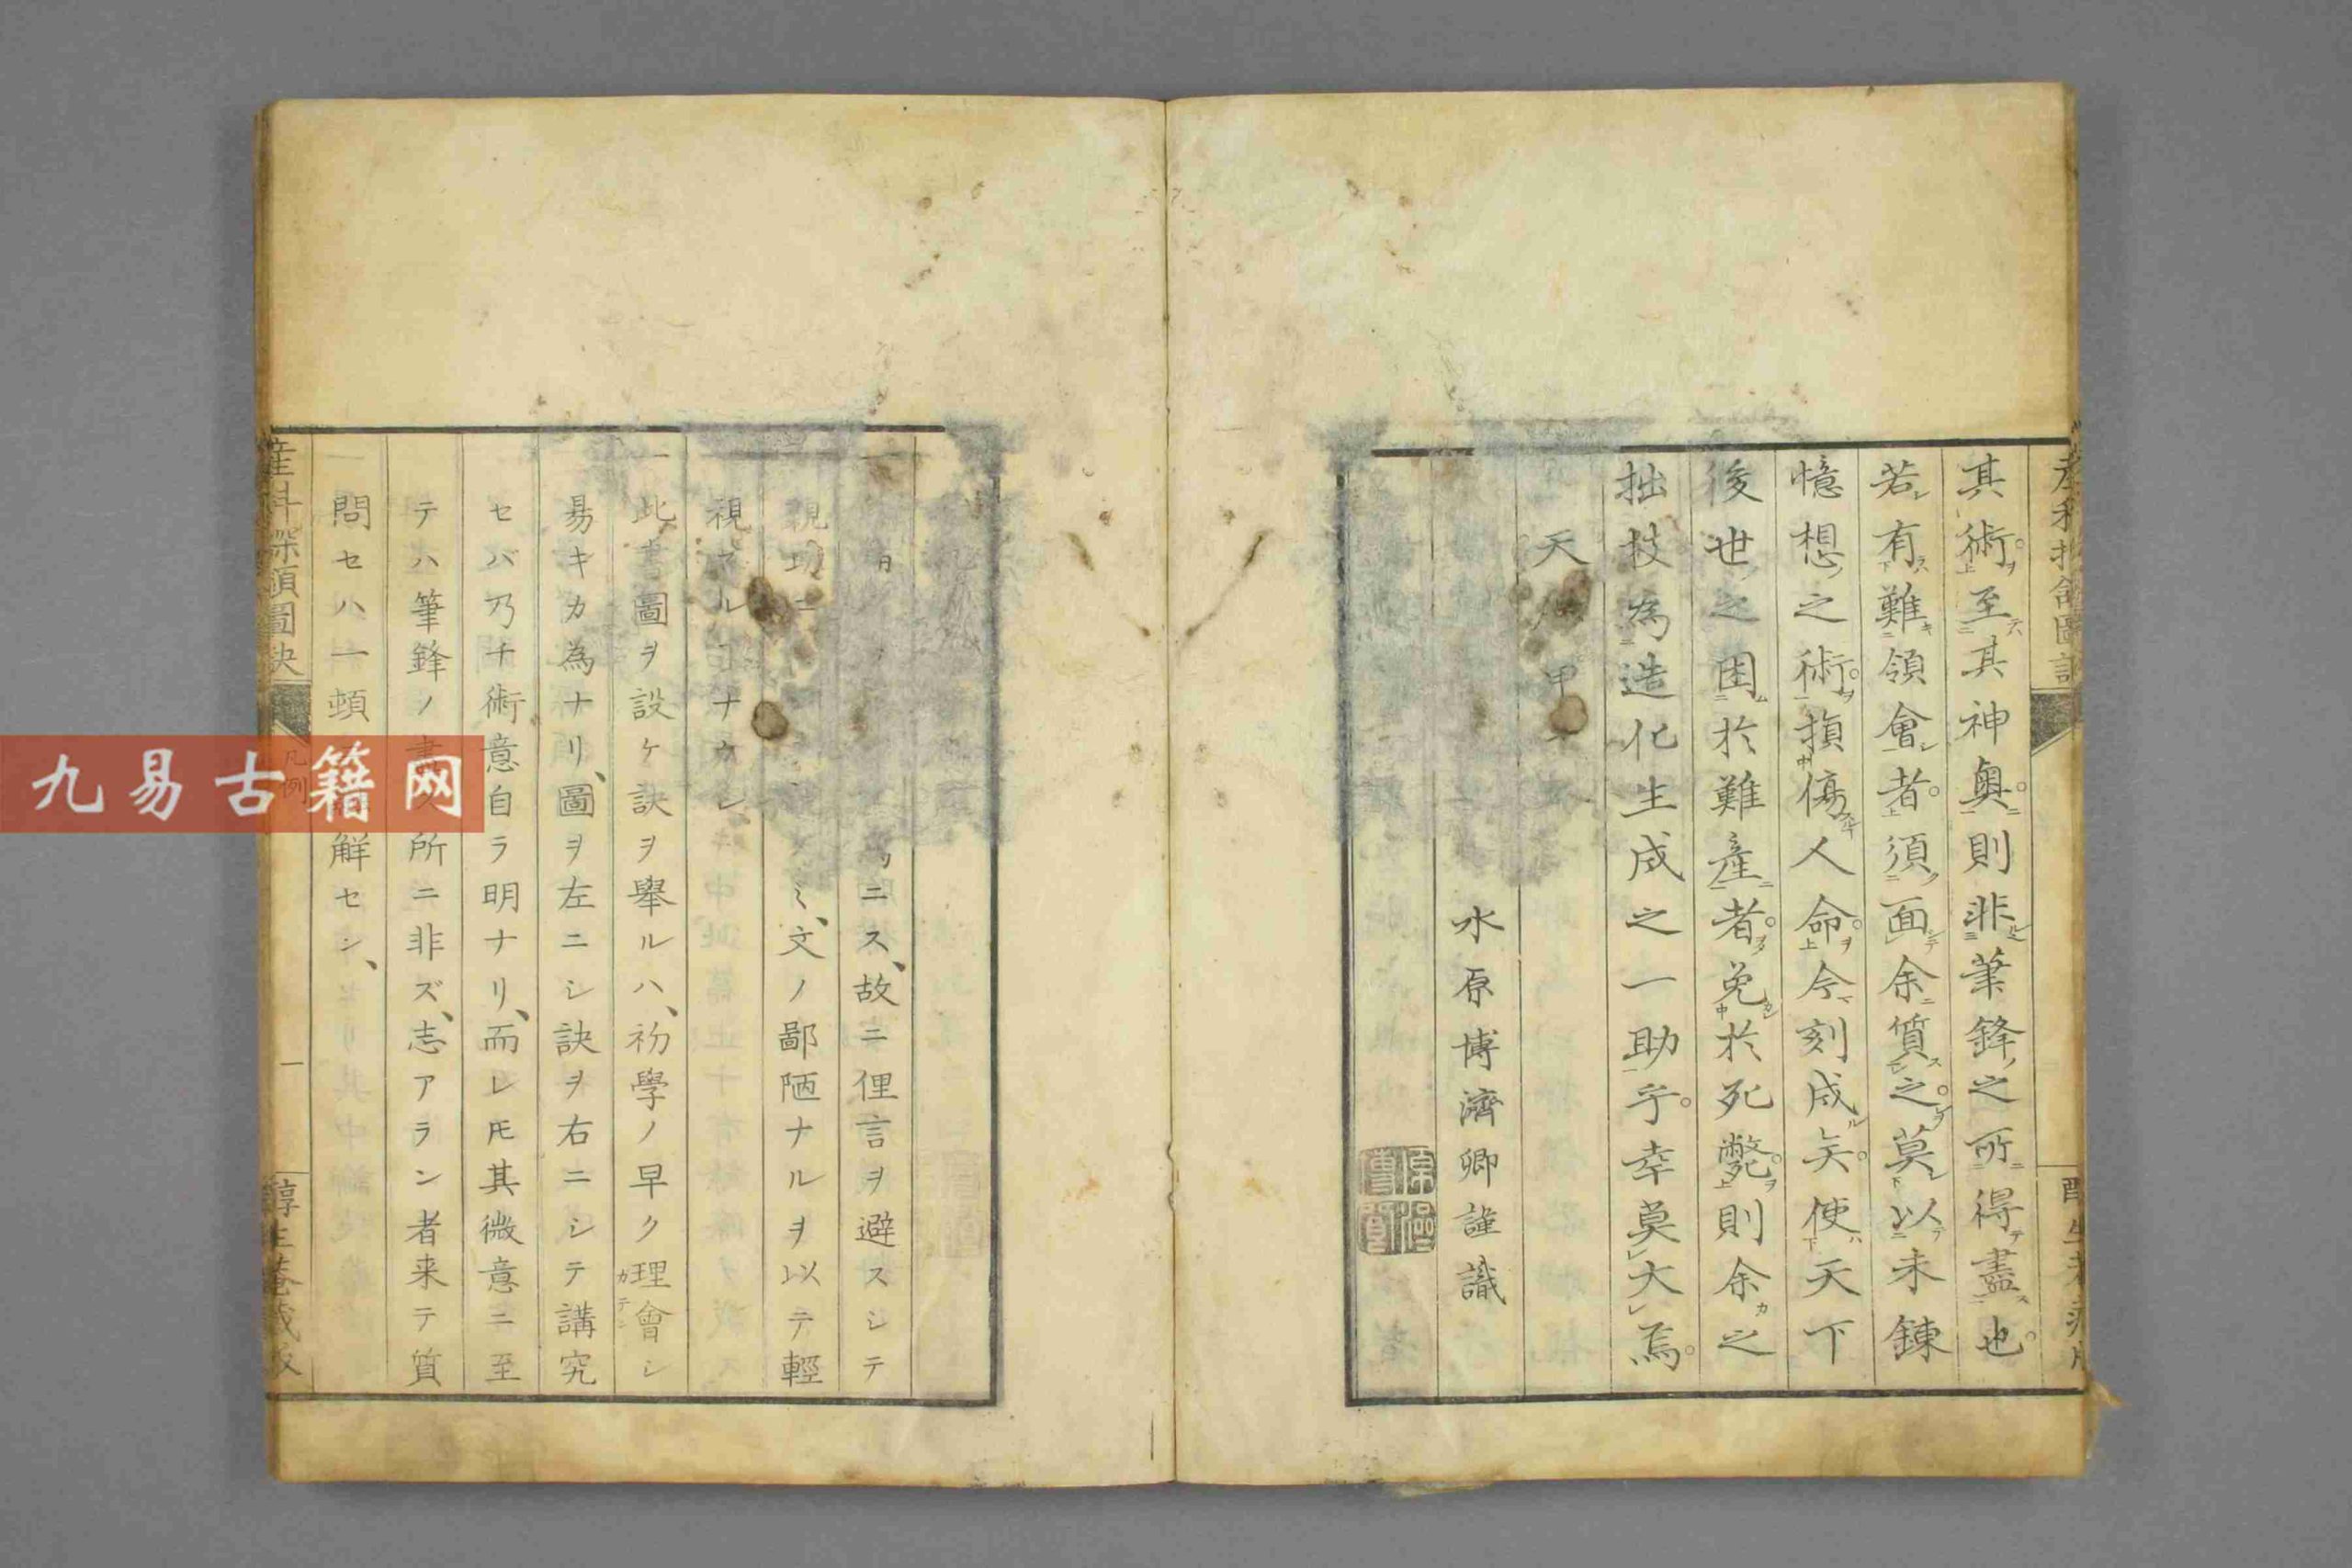 其術至其神奥則非筆鋒之所得盡也
若有難領會者須面余質之莫以未錬
憶想之術損傷人命今刻成矣使天下
後世之困於難産者免於死斃則余之
拙技為造化生成之一助乎幸莫大焉
天
水原博濟卿謹識
ニス、故ニ俚言ヲ避スシテ
文ノ鄙陋ナルヲ以テ輕
視スルナカレ
一此書圖ヲ設ケ訣ヲ舉ルハ、初學ノ早ク理會シ
易キカ為ナリ、圖ヲ左ニシ訣ヲ右ニシテ講究
セバ乃チ術意自ラ明ナリ、而レ𪜈其微意ニ至
テハ筆鋒ノ書ス所ニ非ズ、志アラン者来テ質
問セハ一頓解セン、
産科探頷圖訣
凡例
一
醇生菴蔵版
九易古籍网